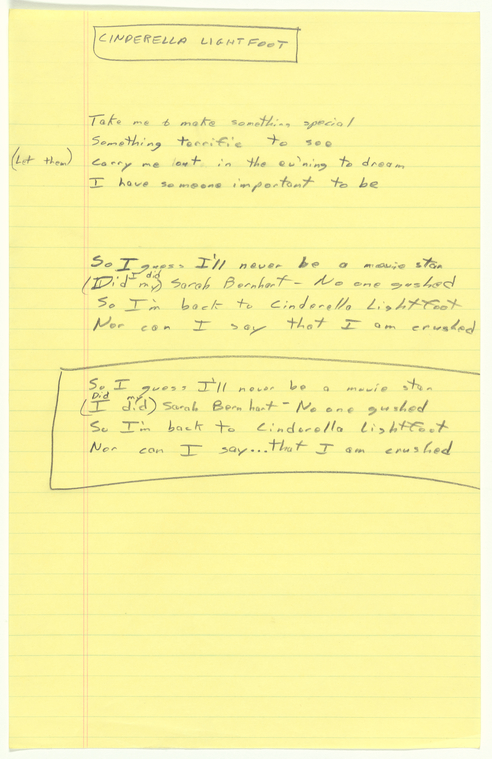 CINDERELLA LIGHTFOOT
Take me to make something special
Something terrific to see
(Let them) Carry me out in the ev'ning to dream
I have someone important to be
So I guess I'll never be a movie star
I did
(Did my) Sarah Bernhart - No one gushed
So I'm back to Cinderella Lightfoot
Nor can I say that I am crushed
So I guess I'll never be a movie star
Did my
(I did) Sarah Bernhart - No one gushed
So I'm back to Cinderella Lightfoot
Nor can I say...that I am crushed